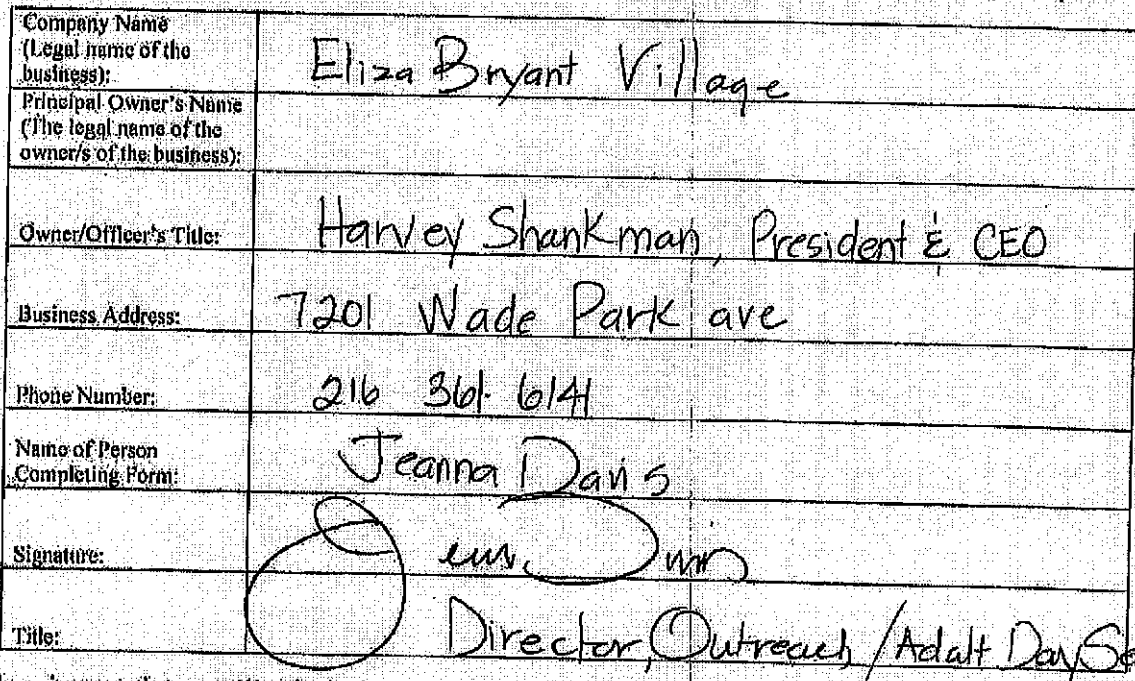 Company Name
(Legal name of the
business):
Eliza Bryant Village
Principal Owner's Name
(The legal name of the
owner/s of the business):
Owner/Officer's Title:
Harvey Shankman, President & CEO
Business Address:
7201 Wade Park ave
Phone Number:
216 361. 6141
Name of Person
Completing Form:
Jeanna Davis
Signature:
Title:
Director, Outreach / Adalt Day Se